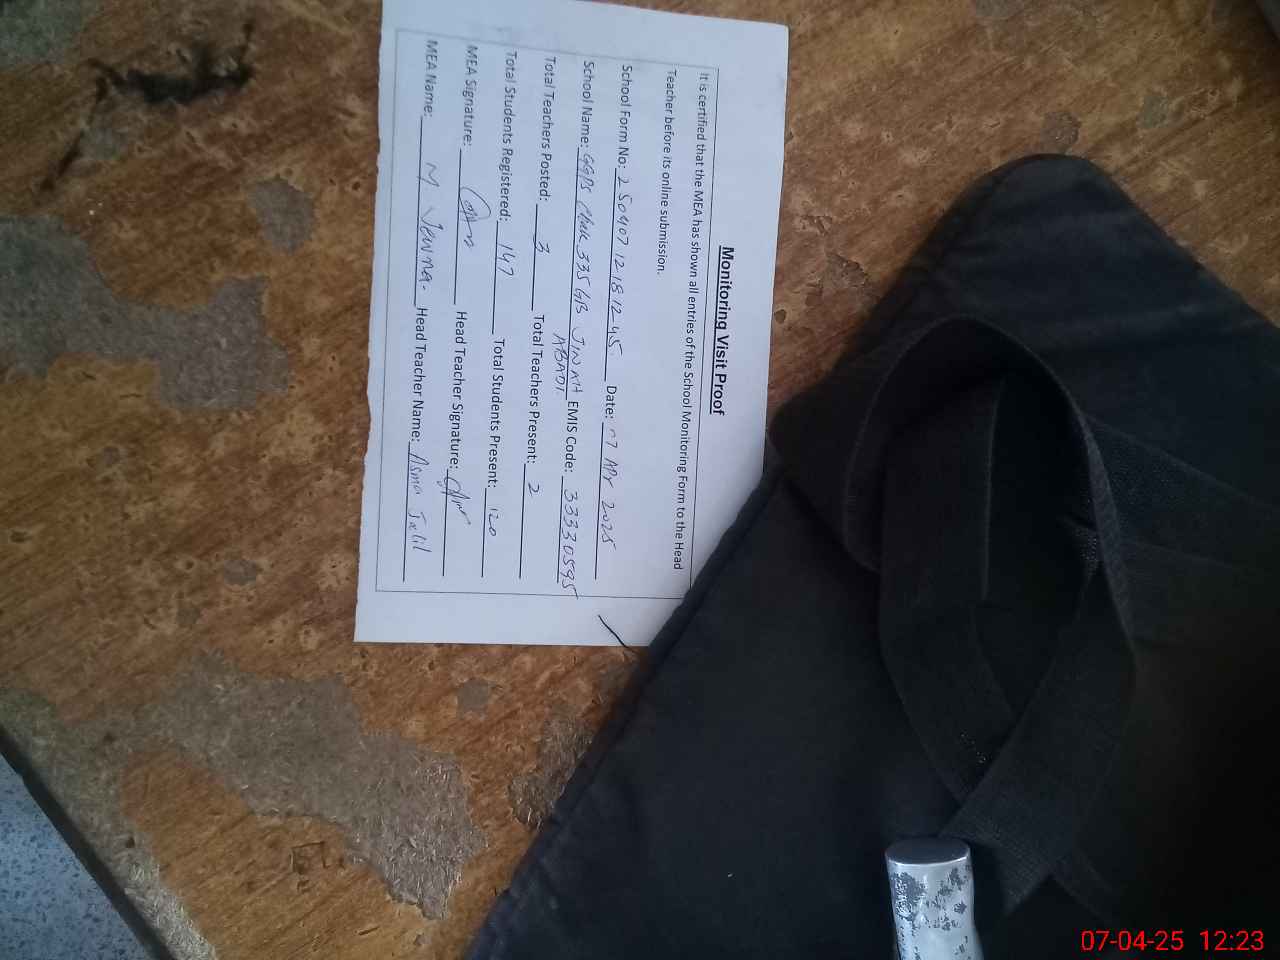 Monitoring Visit Proof
It is certified that the MEA has shown all entries of the School Monitoring Form to the Head
Teacher before its online submission.
School Form No: 25040712181245. Date: 07 Apr 2025
School Name: GGPS Chak 335 GB JINAH ABADI. EMIS Code: 33330595
Total Teachers Posted: 3 Total Teachers Present: 2
Total Students Registered: 147 Total Students Present: 120
MEA Signature: Head Teacher Signature:
MEA Name: M Head Teacher Name: Asma Jalil
07-04-25 12:23